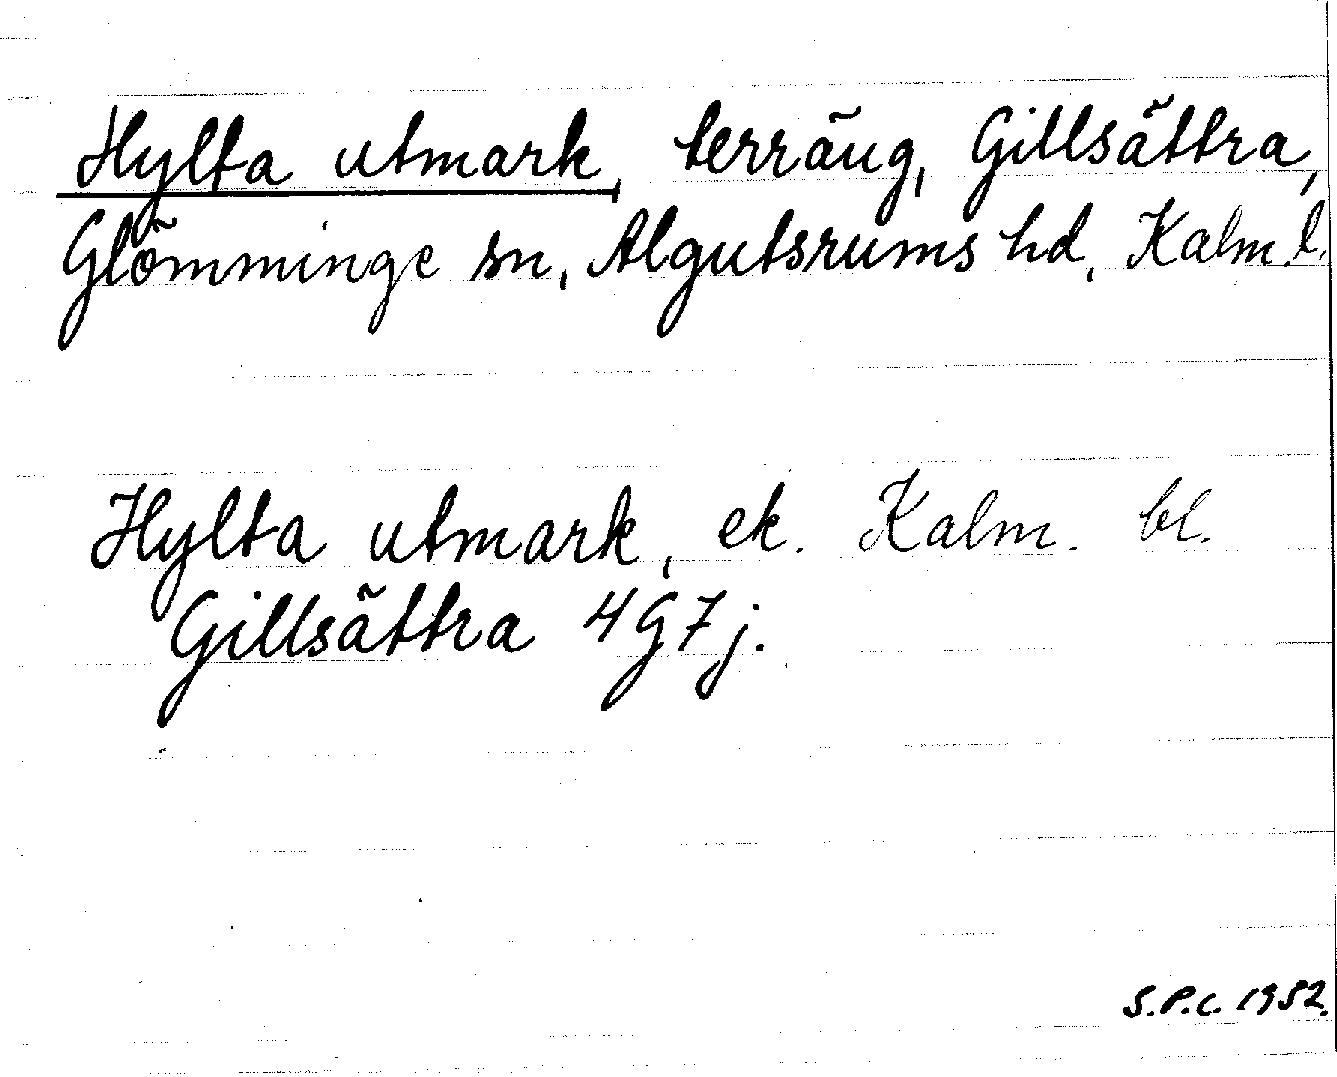 Hylta utmark, terräng, Gillsättra,
Glömminge sn, Algutsrums hd, Kalm. l.
Hylta utmark, ek. Kalm. bl.
Gillsättra 4G7j.
S.P.C. 1952.